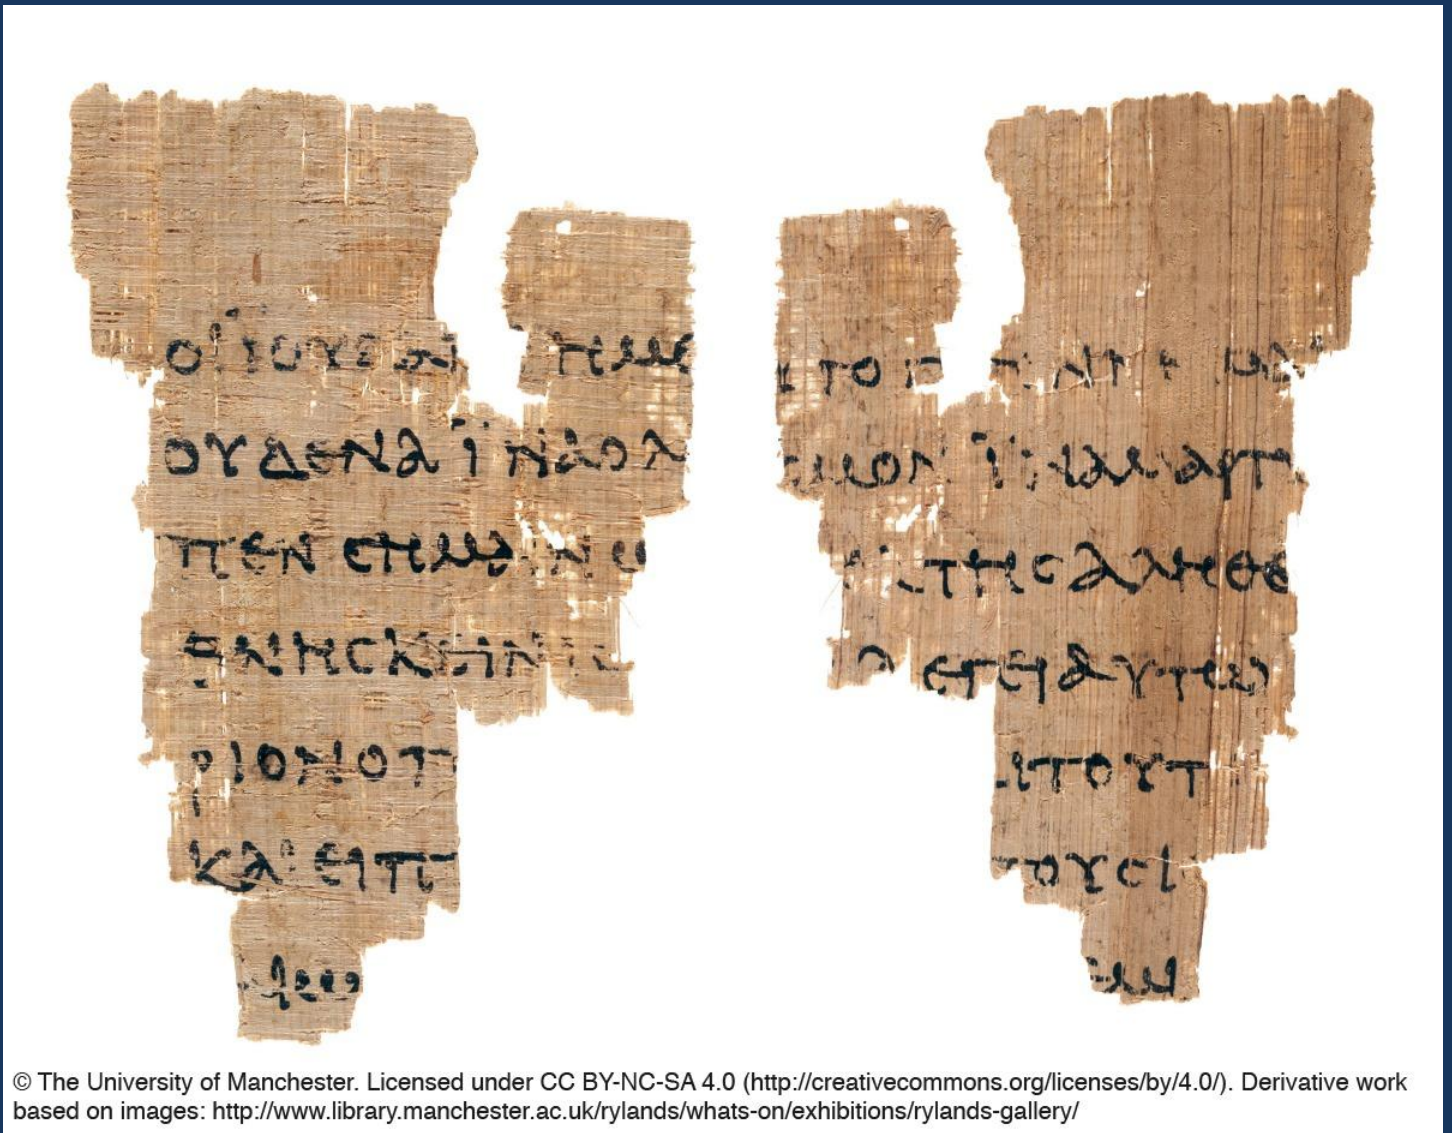 ΟΙ ΙΟΥΔΑΙ ΗΜΕ
ΟΥΔΕΝΑ ΪΝΑ Ο Λ
ΠΕΝ ΣΗΜΑΙΝΩ
ΘΝΗΣΚΕΙΝ ΙΣ
ΡΙΟΝ Ο Π
ΚΑΙ ΕΙΠ
ΑΙΩ
ΤΟ Ν
ΣΜΟΝ ΪΝΑ ΜΑΡΤΥ
ΤΗΣ ΑΛΗΘΕ
ΛΕΓΕΙ ΑΥΤΩ
ΤΟΥΤ
ΤΟΥΣ Ι
ΕΜΙ
© The University of Manchester. Licensed under CC BY-NC-SA 4.0 (http://creativecommons.org/licenses/by/4.0/). Derivative work
based on images: http://www.library.manchester.ac.uk/rylands/whats-on/exhibitions/rylands-gallery/